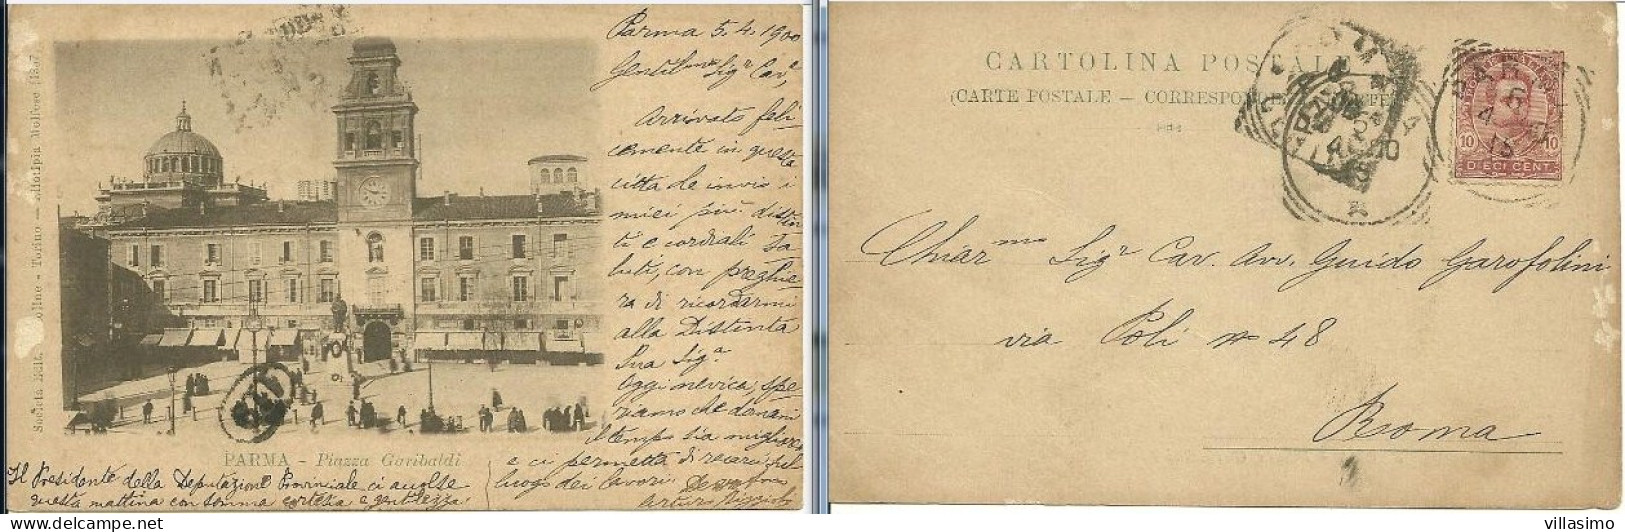 Parma 5.4.1900
Gentil.mo Sig.r Cav.e
Arrivato feli
cemente in questa
città le invio i
miei più distin
ti e cordiali sa
luti, con preghie
ra di ricordarmi
alla Distinta
Sua Sig.a
Oggi nevica, spe
riamo che domani
il tempo sia migliore
e ci permetta di recarci sul
luogo dei lavori.
Arturo
PARMA - Piazza Garibaldi
Il Presidente della Deputazione Provinciale ci accolse
questa mattina con somma cortesia e gentilezza.
Torino
CARTOLINA POSTALE
(CARTE POSTALE — CORRESPONDE
PARMA
10 10
DIECI CENT.
Chiar.mo Sig.r Cav. Avv. Guido Garofolini
via Poli n 48
Roma
villasimo